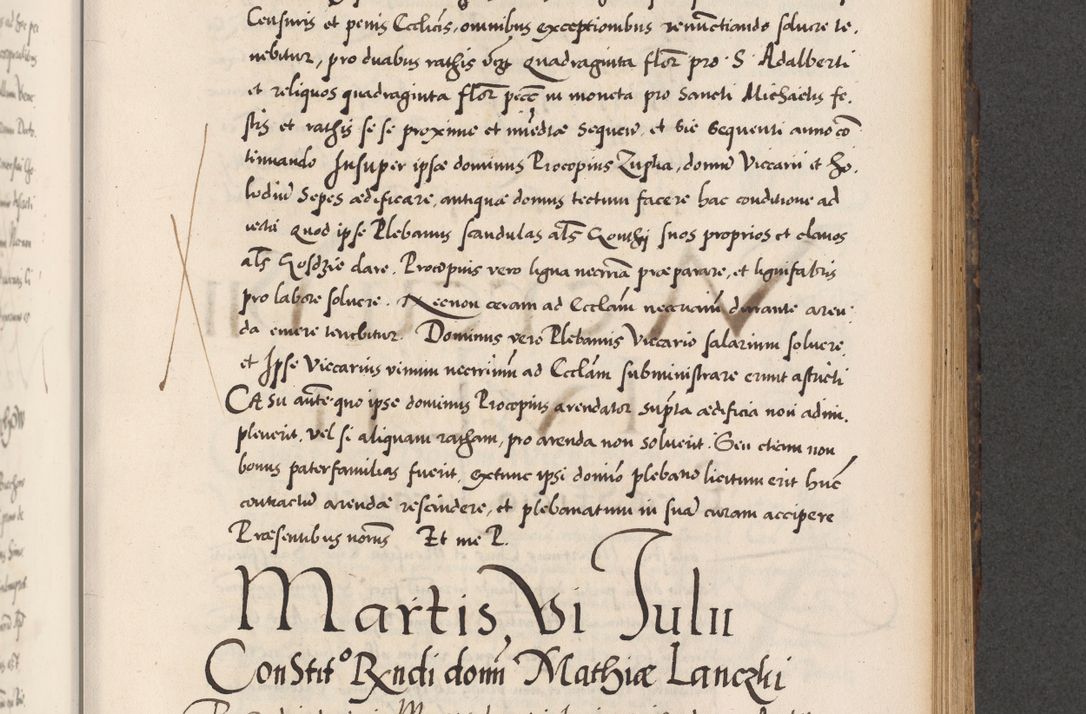 Censuris et penis Ecclicis, omnibus exceptionibus renunctiando solvere te,
nebitur, pro duabus rathis vdz Quadraginta flor pro S Adalberti
et reliquos quadraginta flor in moneta pro Sancti Michaelis fe,
stis et rathis se se proxime et immediate sequen, et sic sequenti anno co
tinuando Insuper ipse dominus Procopius Zuptha, domu Viccarii et Ho,
lodiu Sepes aedificare, antiquae domus tectum facere hac conditione ad
iecta Quod ipse Plebanus scandulas als Gonthi suos proprios et clavos
als Gosdzie dare, Procopius vero ligna necria praeparare, et lignifabris
pro labore solvere. Necnon ceram ad Ecclam necriam durante aren,
da emere tenebitur. Dominus vero Plebanus Viccario salarium solvere,
et Ipse Viccarius vinum necrium ad Ecclam subministrare erunt astricti
CAsu aute quo ipse dominus Procopius arendator supta aedificia non adim,
pleverit, vel si aliquam ratham, pro arenda non solverit. Seu etiam non
bonus paterfamilias fuerit, extunc ipsi domino plebano licitum erit hunc
contractu arendae rescindere, et plebanatum in sua curam accipere
Praesentibus noris Et me P.
Martis Vi Julii
Constit° Rndi domi Mathiae Lanczki